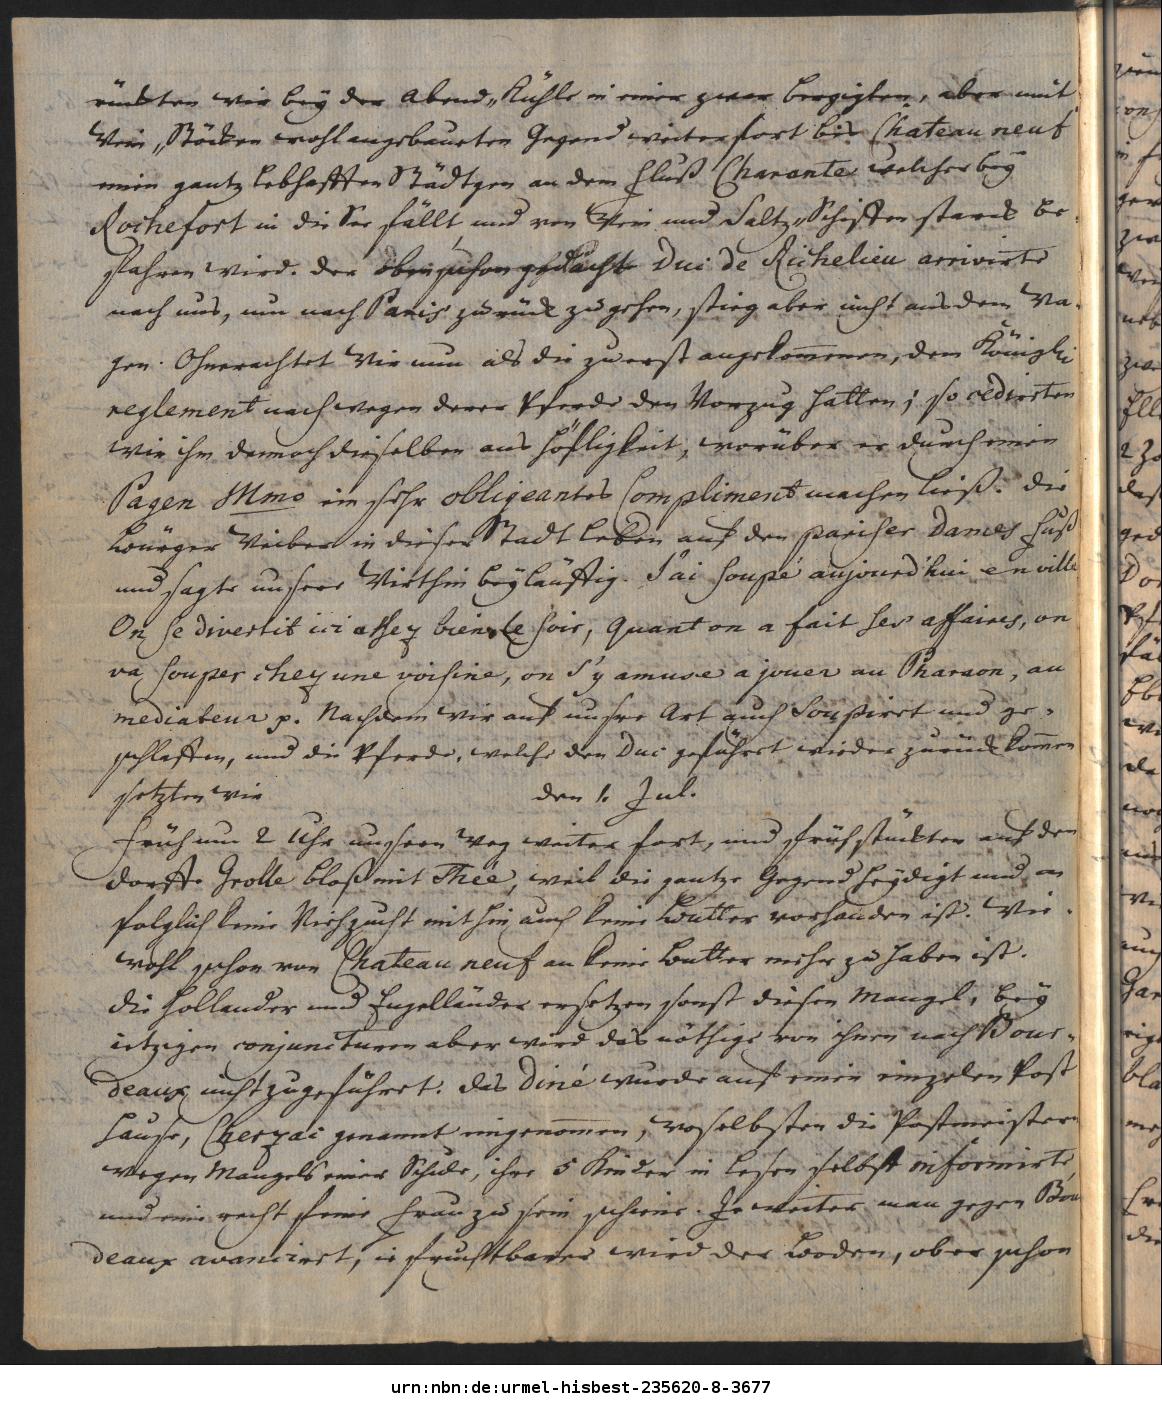 rückten wir beÿ der Abend„Kühle in einer zwar bergigten, aber mit
Wein„Stöcken wohl angebaueten Gegend weiter fort bis Chateauneuf
einen gantz lebhafften Städtgen an dem Fluß Charante, welcher beÿ
Rochefort in die See fällt und von Wein und Saltz„Schiffen starck be-
fahren wird. Der oben schon gedachte Duc de Richelieu arrivirte
nach uns, um nach Paris zurück zu gehen, stieg aber nicht aus dem Wa-
gen. Ohnerachtet wir nun als die zu erst angekom̅enen, dem Königli
reglement nach wegen derer Pferde den Vorzug hatten; so cedierten
wir ihm dennoch dieselben aus Höfligkeit, worüber er durch einen
Pagen Mmo ein sehr obligeantes Compliment machen ließ. Die
Bürger Weiber in dieser Stadt leben auf den pariser Dames Fuß
und sagte unsere Wirthin beÿläuffig. J'ai soupé aujourd'hui en ville
On se divertit ici assez bien le soir, quant on a fait ses affaires, on
va souper chez une voisine, on s'y amuse a jouer au Pharaon, au
mediateur p. Nachdem wir auf unsre Art auch soupiret und ge-
schlaffen, und die Pferde, welche den Duc geführet wieder zurück kom̅en
setzten wir den 1. Jul.
Früh um 2 Uhr unsern Weg weiter fort, und frühstückten auf den
Dorffe Grolle bloß mit Thée, weil die gantze Gegend heydigt und
folglich keine Viehzucht mithin auch keine Butter vorhanden ist. Wie-
wohl schon von Chateauneuf an keine Butter mehr zu haben ist.
Die Holländer und Engelländer ersetzen sonst diesen Mangel, beÿ
ietzigen conjuncturen aber wird das nöthige von ihnen nach Bour-
deaux nicht zugeführet. Das Diné wurde auf einen einzelen Post
Hause, Cherzac genannt eingenom̅en, woselbsten die Postmeistern
wegen Mangels einer Schule, ihre 5 Kinder in lesen selbst informirte
und eine recht feine Frau zu sein schiene. Je weiter man gegen Bou
deaux avanciret, ie fruchtbarer wird der Boden, ober schon